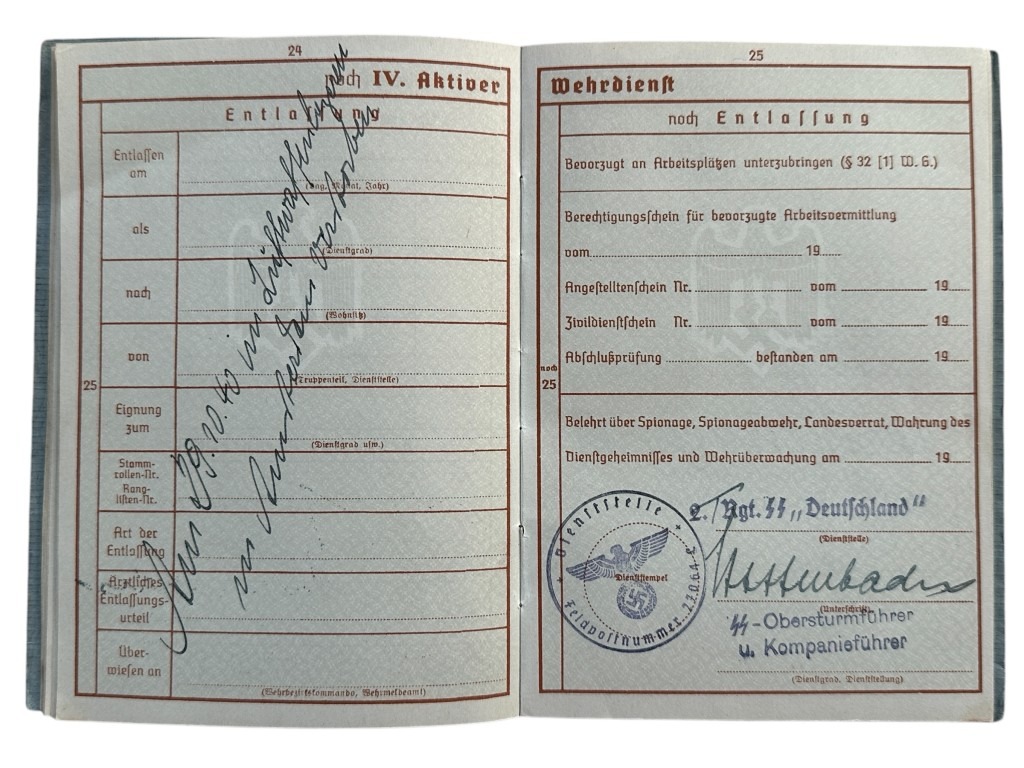 24
noch IV. Aktiver
Entlassung
Entlassen
am
(Tag, Monat, Jahr)
als
(Dienstgrad)
nach
(Wohnsitz)
von
(Truppenteil, Dienststelle)
25
Eignung
zum
(Dienstgrad usw.)
Stamm-
rollen-Nr.
Rang-
listen-Nr.
Art der
Entlassung
Ärztliches
Entlassungs-
urteil
Über-
wiesen an
(Wehrbezirkskommando, Wehrmeldeamt)
Am 29.10.40 im Luftwaffenlazarett
in Amsterdam verstorben
25
Wehrdienst
noch Entlassung
Bevorzugt an Arbeitsplätzen unterzubringen (§ 32 [1] W. G.)
Berechtigungsschein für bevorzugte Arbeitsvermittlung
vom 19
Angestelltenschein Nr. vom 19
Zivildienstschein Nr. vom 19
Abschlußprüfung bestanden am 19
noch
25
Belehrt über Spionage, Spionageabwehr, Landesverrat, Wahrung des
Dienstgeheimnisses und Wehrüberwachung am 19
2./Rgt. SS „Deutschland"
(Dienststelle)
Dienststelle
Dienststempel
Feldpostnummer
(Unterschrift)
SS-Obersturmführer
u. Kompanieführer
(Dienstgrad, Dienststellung)